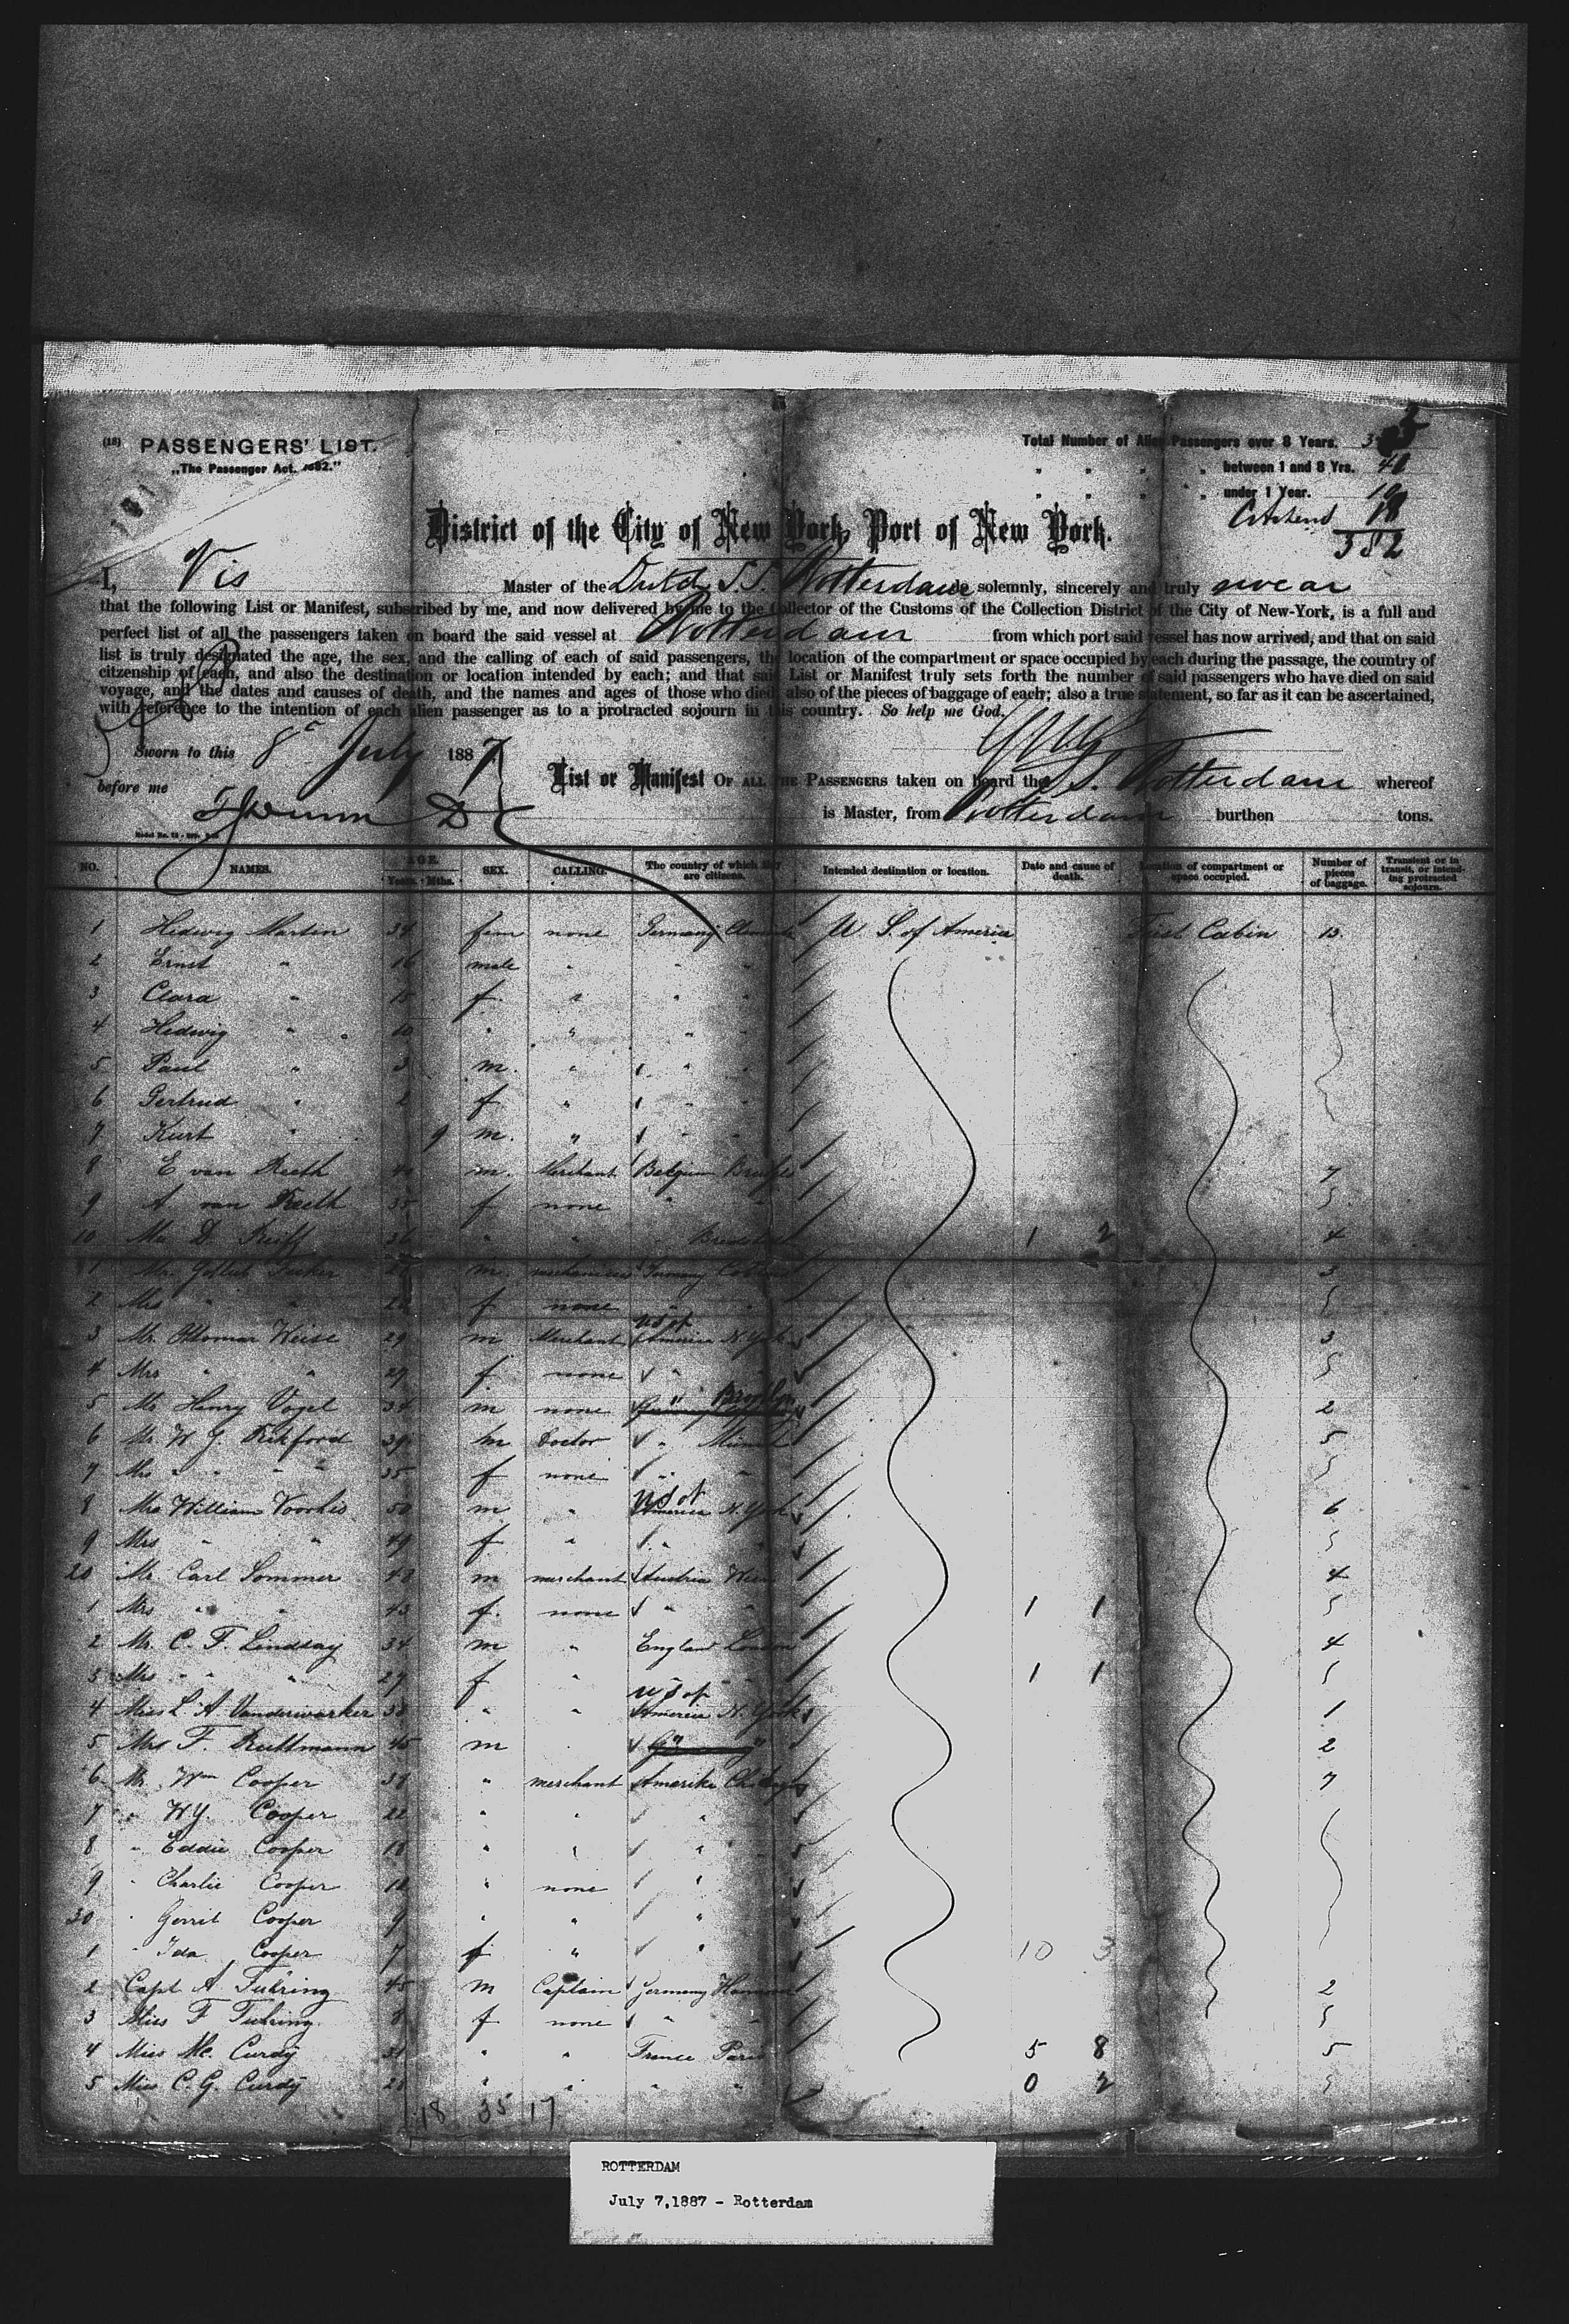 (18) PASSENGERS' LIST.
„The Passenger Act. 1882."
Total Number of Alien Passengers over 8 Years.
" " " " between 1 and 8 Yrs.
" " " " under 1 Year. 10
382
District of the City of New York, Port of New York.
I, Vis Master of the Dutch S.S. Rotterdam do solemnly, sincerely and truly swear
that the following List or Manifest, subscribed by me, and now delivered by me to the Collector of the Customs of the Collection District of the City of New-York, is a full and
perfect list of all the passengers taken on board the said vessel at Rotterdam from which port said vessel has now arrived, and that on said
list is truly designated the age, the sex, and the calling of each of said passengers, the location of the compartment or space occupied by each during the passage, the country of
citzenship of each, and also the destination or location intended by each; and that said List or Manifest truly sets forth the number of said passengers who have died on said
voyage, and the dates and causes of death, and the names and ages of those who died, also of the pieces of baggage of each; also a true statement, so far as it can be ascertained,
with reference to the intention of each alien passenger as to a protracted sojourn in this country. So help me God.
Sworn to this 8 July 1887
before me
List or Manifest OF ALL THE PASSENGERS taken on board the S.S. Rotterdam whereof
is Master, from Rotterdam burthen tons.
NO. NAMES. AGE. Years. Mths. SEX. CALLING. The country of which they are citizens. Intended destination or location. Date and cause of death. Location of compartment or space occupied. Number of pieces of baggage. Transient or in transit, or intending protracted sojourn.
1 Hedwig Martin 34 fem none Germany U. S. of America First Cabin 13.
2 Ernst " 16 male " " "
3 Clara " 15 f. " " "
4 Hedwig " 10 " " " "
5 Paul " 3 m. " " "
6 Gertrud " 2 f " " "
7 Kurt " 9 m. " " "
8 E van Reeth 40 m. Merchant Belgium 7
9 A van Reeth 35 f none "
10 D. Reiff 36 " " 1 2 4
1 Mr. Gottlieb m. Germany 3
2 Mrs " " f none
3 Mr. Ottomar Weise 29 m Merchant US of America N. York 3
4 Mrs " " 29 f none "
5 Mr Henry Vogel 34 m none " Brooklyn 2
6 Mr W. G. 39 m Doctor " 5
7 Mrs " " " 35 f none "
8 Mr William Voorhis 50 m " US of America N. York 6
9 Mrs " " 49 f " "
20 Mr. Carl Sommer 48 m merchant Austria Wien 4
1 Mrs " " 43 f. none " 1 1
2 Mr. C. F. Lindsay 34 m " England London 4
3 Mrs " " 27 f " " 1 1
4 Miss L. A. Vanderwarker 38 " " US of America N. York 1
5 Mrs F. Ruttmann 45 m " " 2
6 Mr. Wm Cooper 39 " merchant Amerika Chicago 7
7 " W.Y. Cooper 22 " " "
8 " Eddie Cooper 18 " " "
9 " Charlie Cooper 12 " none "
30 " Gerrit Cooper 9 " " "
1 " Ida Cooper 7 f " " 10 3
2 Capt A. Führing 45 m Captain Germany 2
3 Miss F Führing 8 f none "
4 Miss Mc. Curdy 31 " " France Paris 5 8 5
5 Miss C. G. Curdy 28 " " " " 0 2
18 35 17
ROTTERDAM
July 7,1887 - Rotterdam